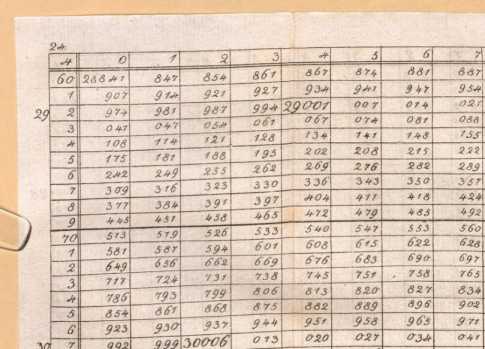 24
A 0 1 2 3 4 5 6 7
60 28841 847 854 861 867 874 881 887
1 907 914 921 927 934 941 947 954
29 2 974 981 987 994 29001 007 014 021
3 041 047 054 061 067 074 081 088
4 108 114 121 128 134 141 148 155
5 175 181 188 195 202 208 215 222
6 242 249 255 262 269 276 282 289
7 309 316 323 330 336 343 350 357
8 377 384 391 397 404 411 418 424
9 445 451 458 465 472 479 485 492
70 513 519 526 533 540 547 553 560
1 581 587 594 601 608 615 622 628
2 649 656 662 669 676 683 690 697
3 717 724 731 738 745 751 758 765
4 786 793 799 806 813 820 827 834
5 854 861 868 875 882 889 896 902
6 923 930 937 944 951 958 965 971
30 7 992 999 30006 013 020 027 034 041